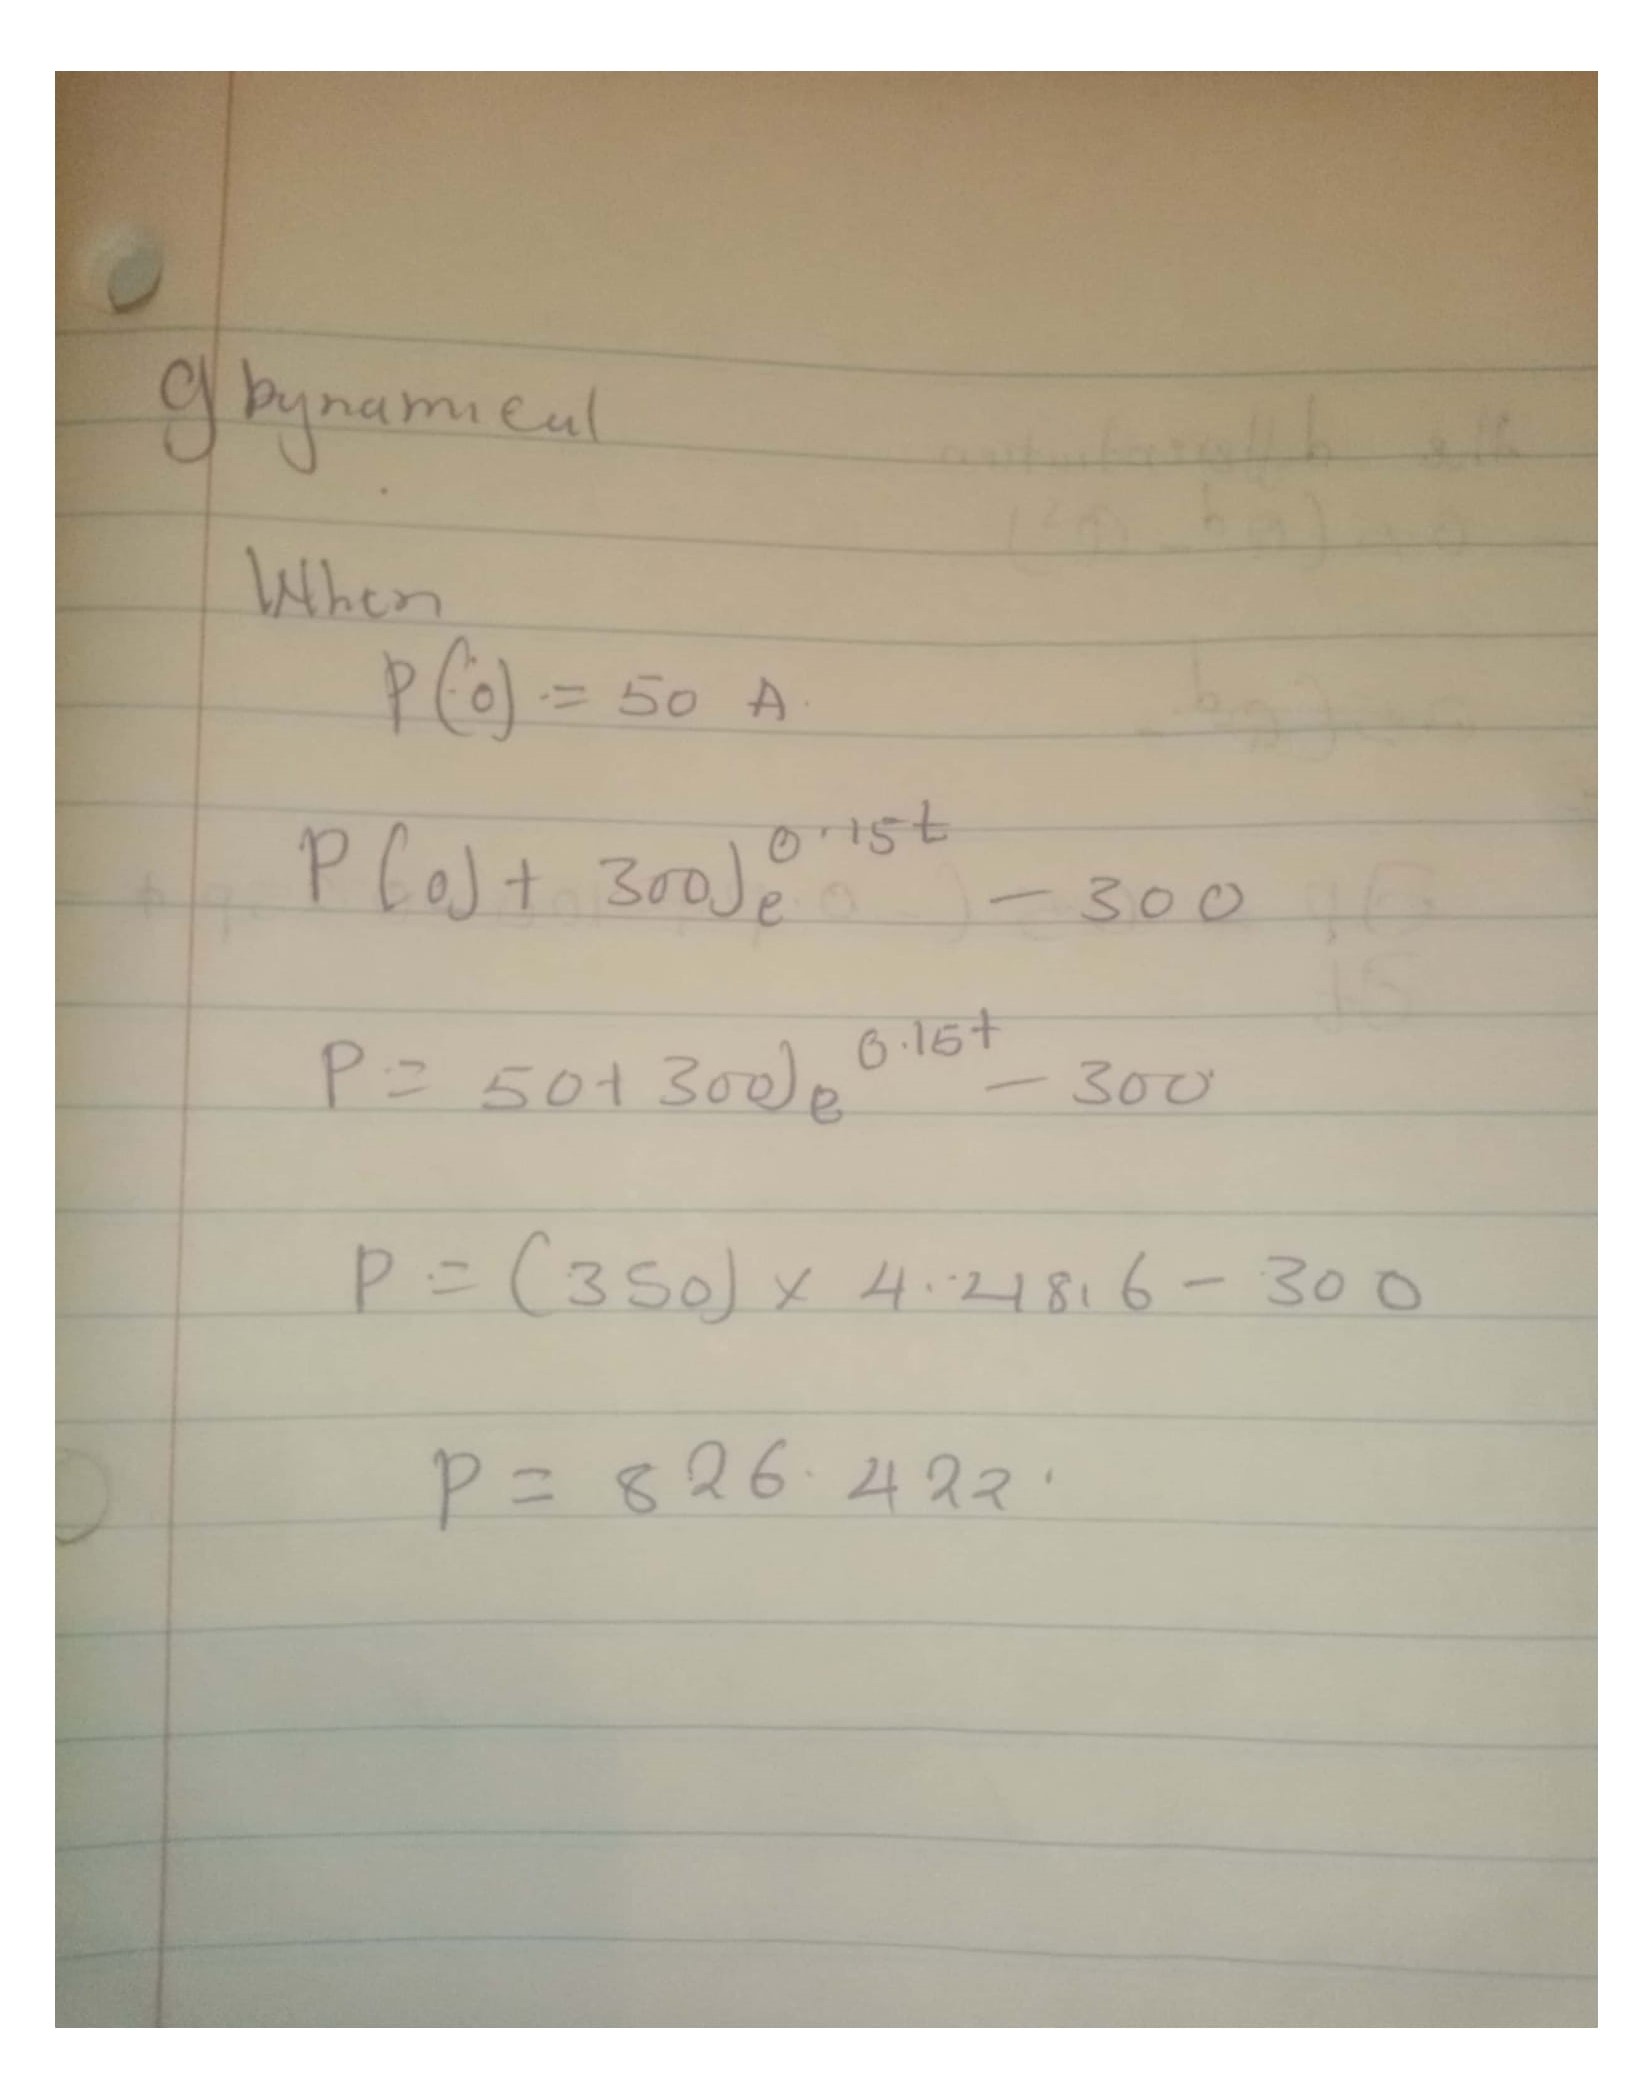 When
P(0) = 50 A.
P(0) + 300)e^0.15t - 300
P = 50 + 300)e^0.15t - 300
P = (350) x 4.4816 - 300
P = 826.422